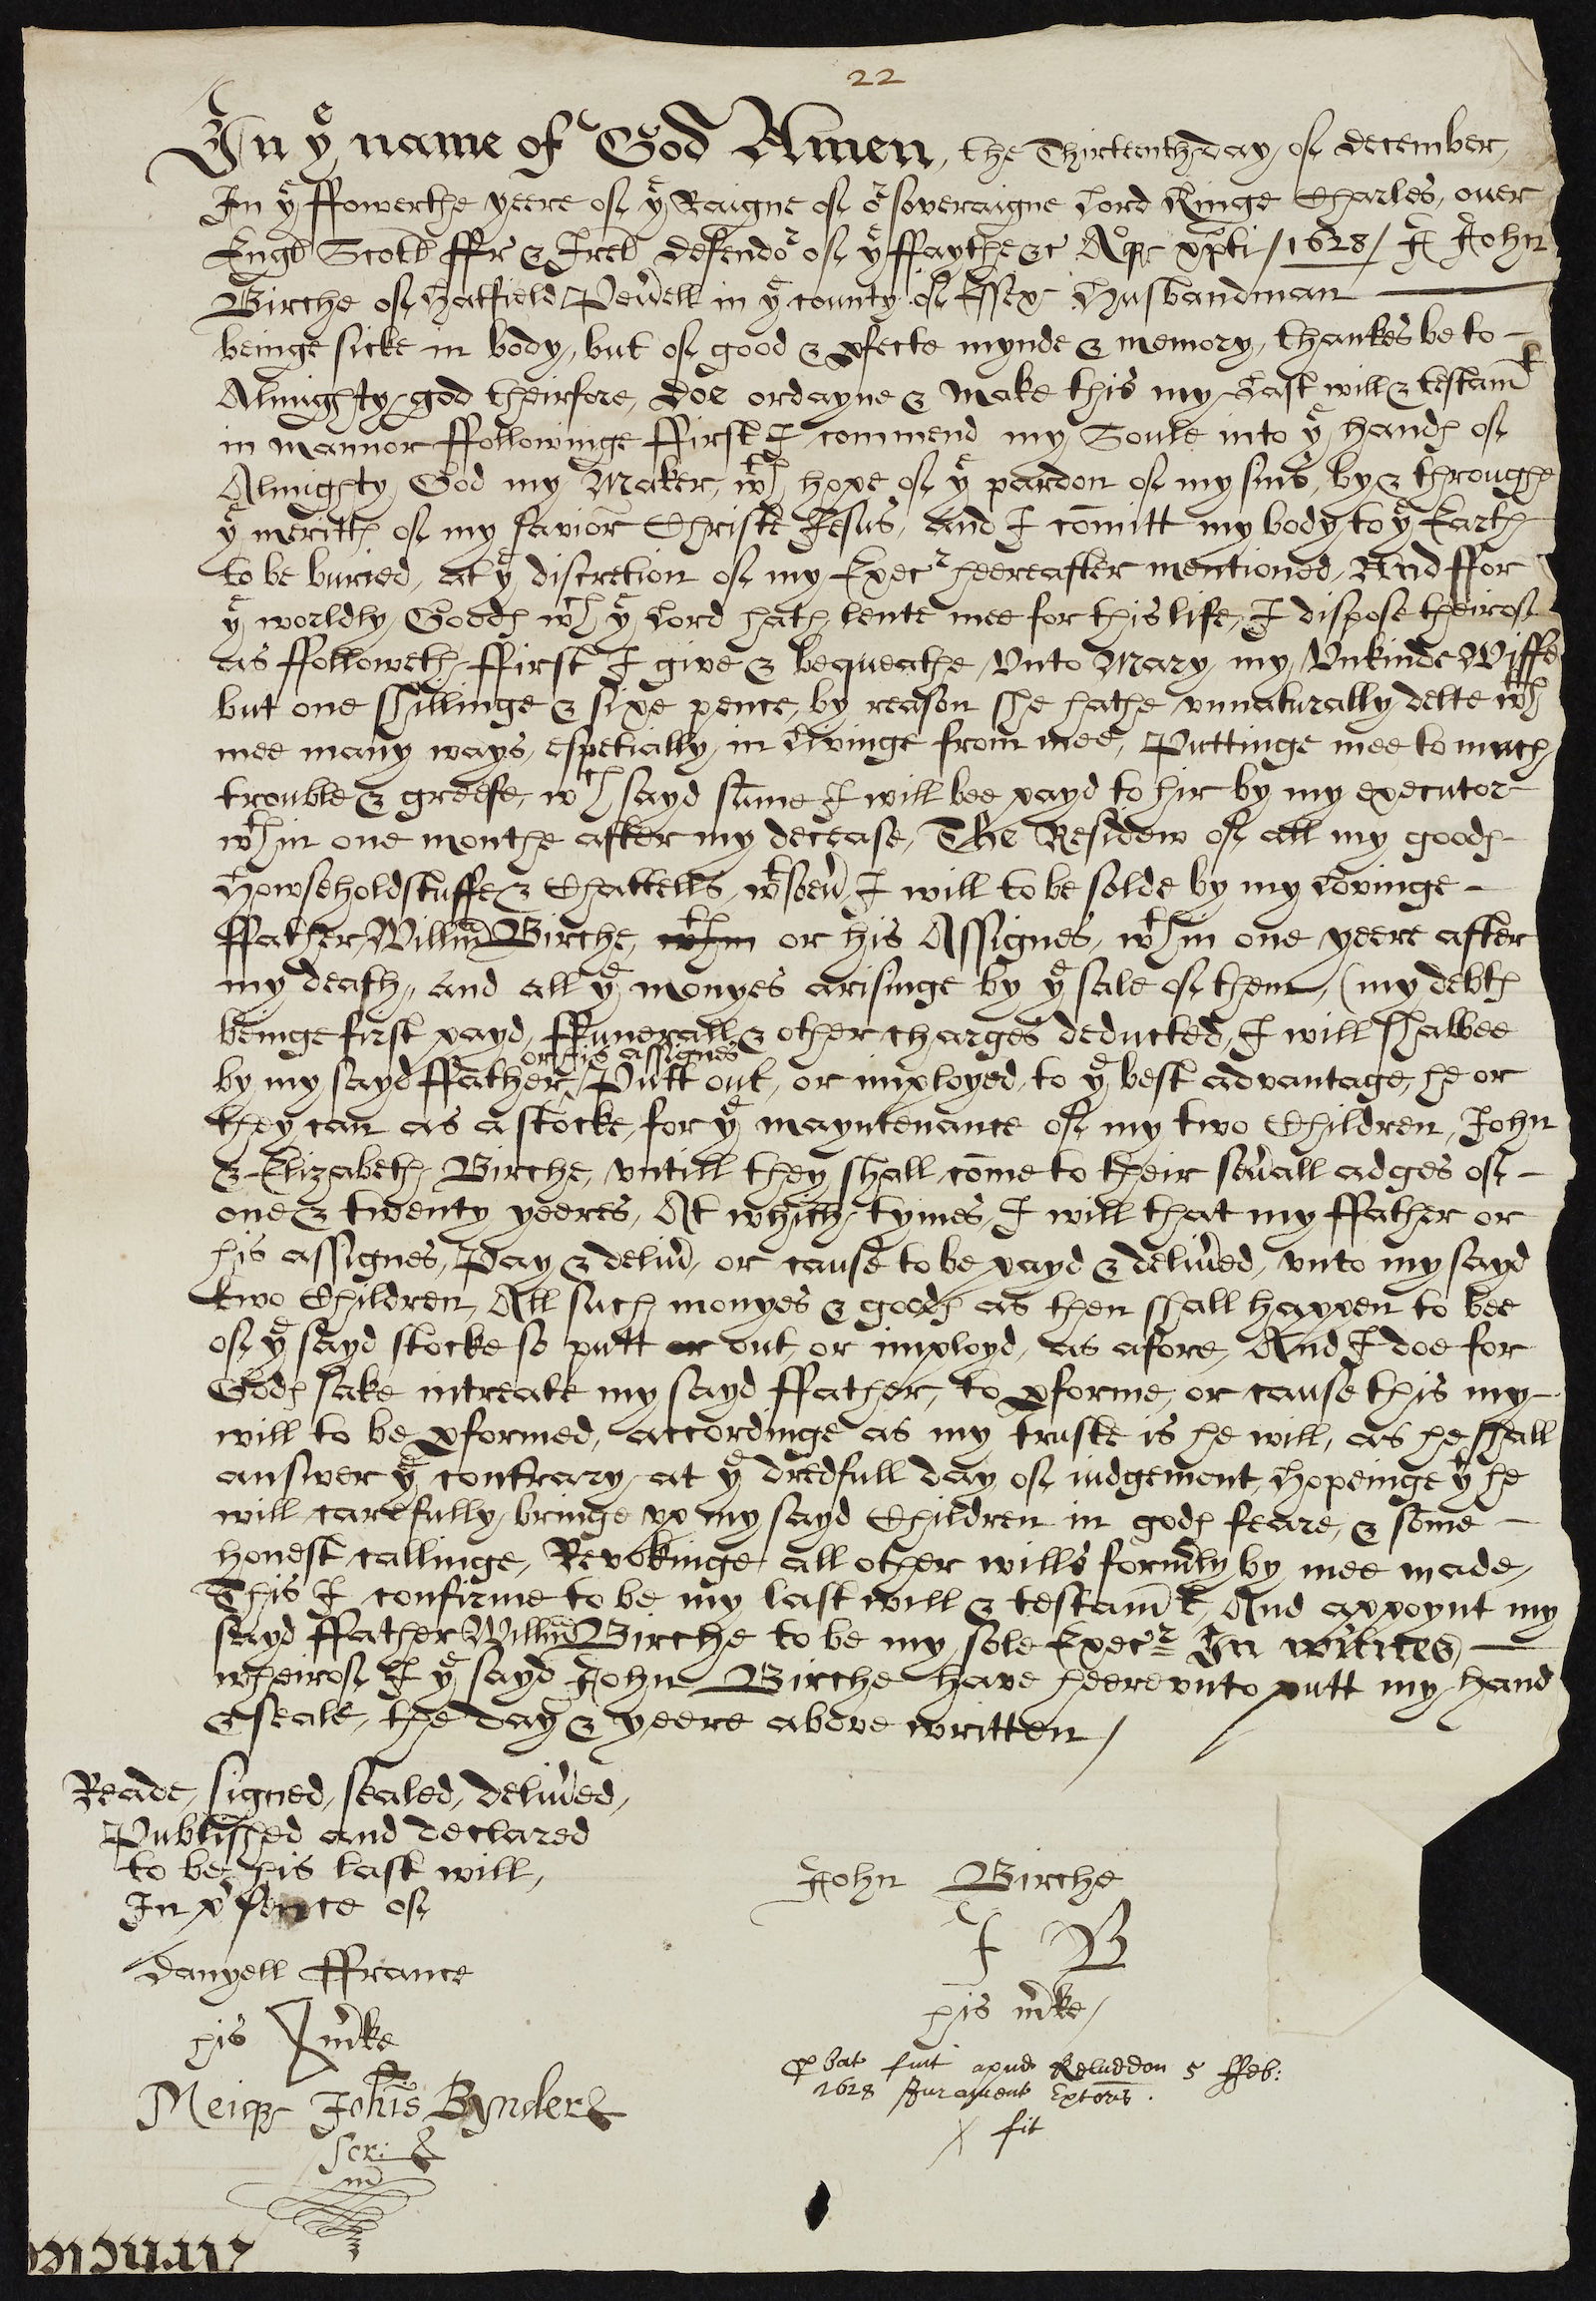 22
In ye name of God Amen, the Thirteenth day of december,
In ye ffowerthe yeere of ye Raigne of or soveraigne Lord Kinge Charles, over
Engl Scotl ffr & Irel defendor of ye ffaythe &c Aoqr xpti /1628/ I John
Birche of Hatfield Pev'ell in ye county of Essex Husbandman
beinge sicke in body, but of good & pfecte mynde & memory, thankes be to
Almighty god theirfore, doe ordayne & make this my Last will & testamt
in mannor ffollowinge ffirst I commend my Soule into ye hands of
Almighty God my Maker, wth hope of ye pardon of my sins, by & throughe
ye meritts of my savior Christe Jesus, And I comitt my body to ye Earth
to be buried, at ye discretion of my Execr heereafter mentioned, And ffor
ye worldly Goods wch ye Lord hath lente mee for this life, I dispose theirof
as ffolloweth, ffirst I give & bequeathe Unto Mary my Unkinde Wiffe
but one shillinge & sixe pence, by reason she hathe unnaturally delte wth
mee many ways, espetially in Livinge from mee, Puttinge mee to much
trouble & greefe, wch sayd sume I will bee payd to hir by my executor
wthin one monthe after my decease, The Residew of all my goods
Howseholdstuffe & Chattells, wtsoev' I will to be solde by my Lovinge
ffather, Willm Birche, wthin or his Assignes, wthin one yeere after
my death, and all ye monyes arisinge by ye sale of them, (my debts
beinge first payd, ffunerall & other charges deducted, I will shalbee
or his assignes
by my sayd ffather ^ Putt out, or imployed, to ye best advantage, he or
they can as a stocke, for ye mayntenance of my two Children, John
& Elizabeth Birche, untill they shall come to their sev'all adges of
one & twenty yeeres, At which tymes, I will that my ffather or
his assignes, Pay & deliv', or cause to be payd & deliv'ed, unto my sayd
two Children, All such monyes & goods as then shall happen to bee
of ye sayd stocke so putt or out, or imployd, as afore, And I doe for
Gods sake intreate my sayd ffather, to pforme, or cause this my
will to be pformed, accordinge as my truste is he will, as he shall
answer ye contrary at ye dredfull day of iudgement, Hopeinge yt he
will carefully bringe up my sayd Children in gods feare, & some
honest callinge, Revokinge all other wills form'ly by mee made,
This I confirme to be my last will & testamt, And appoynt my
sayd ffather Willm Birche to be my sole Execr In witnes
wheirof I ye sayd John Birche have heereunto putt my hand
& seale, the day & yeere above written /
Reade, signed, sealed, deliv'ed,
Published and declared
to be his last will,
In p'sence of
Danyell ffrance
his m'ke
Meiqr Johis Bynder
scr:
John Birche
I B
his m'ke /
pbat fuit apud Keluedon 5 ffeb:
1628 Jurament Extoris.
fit